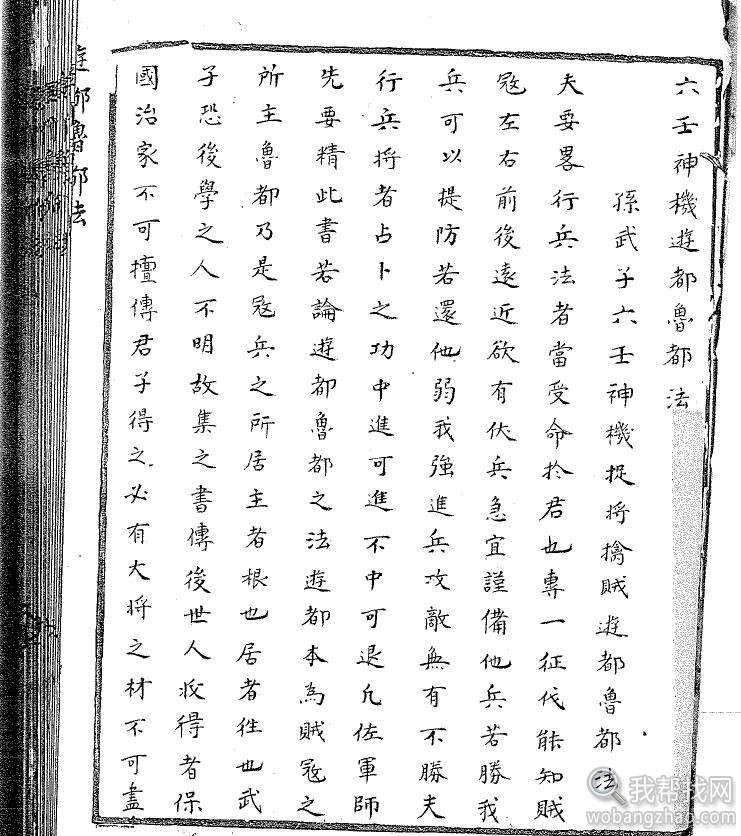 六壬神機遊都魯都法
孫武子六壬神機捉将擒賊遊都魯都法
夫要畧行兵法者當受命於君也專一征伐能知賊
寇左右前後遠近欲有伏兵急宜謹備他兵若勝我
兵可以提防若還他弱我強進兵攻敵無有不勝夫
行兵将者占卜之功中進可進不中可退凡佐軍師
先要精此書若論遊都魯都之法遊都本為賊寇之
所主魯都乃是寇兵之所居主者根也居者往也武
子恐後學之人不明故集之書傳後世人収得者保
國治家不可擅傳君子得之必有大将之材不可盡
遊都魯都法
我帮找网
wobangzhao.com